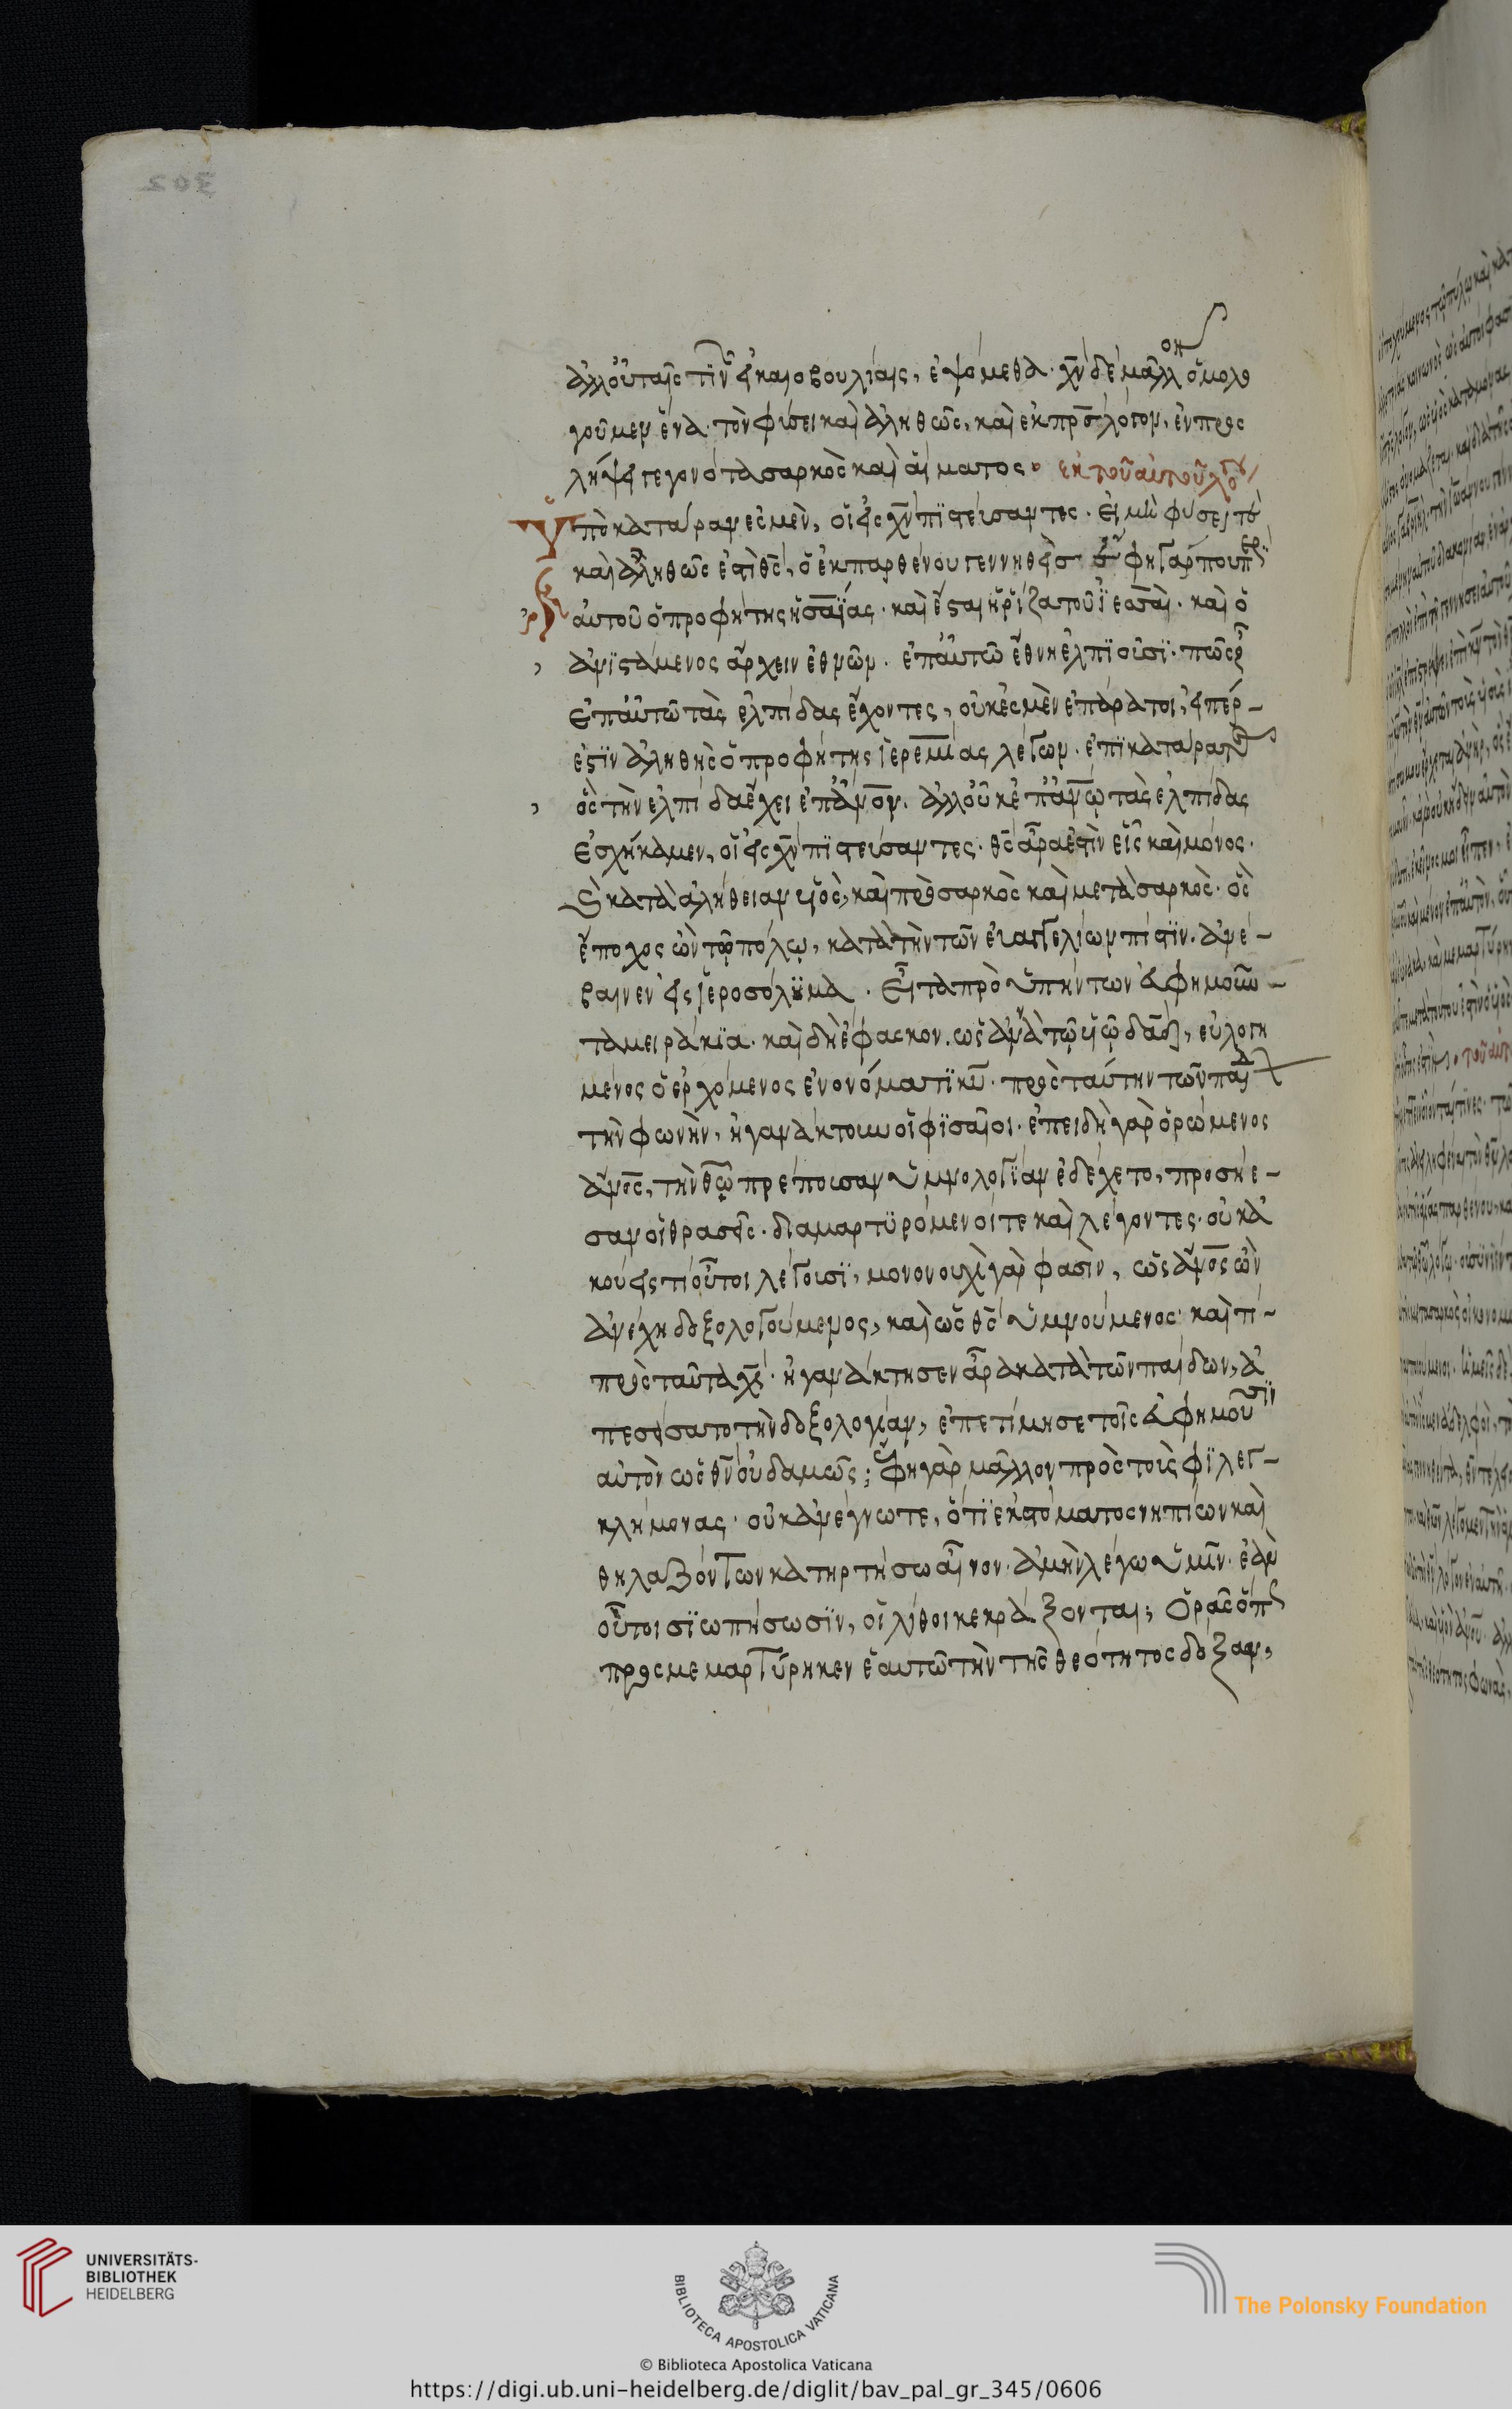 ἀλλ οὐ ταῖς τινῶν εἰκαιοβουλίαις, ἑψόμεθα. χν δὲ μᾶλλον ὁμολο
γοῦμεν ἕνα τὸν φύσει καὶ ἀληθῶς, καὶ ἐκ πρς λόγον, ἐν προσ
λήψει γεγονότα σαρκὸς καὶ αἵματος. ἐκ τοῦ αὐτοῦ λόγου
Ὑπὸ κατάραν ἐσμὲν, οἱ εἰς χν πιστεύσαντες. εἰ μὴ φύσει τὲ
καὶ ἀληθῶς ἐστὶ θς, ὁ ἐκ παρθένου γεννηθείς. ἔφη γάρ που περὶ
αὐτοῦ ὁ προφήτης ἡσαΐας. καὶ ἔσται ἡ ῥίζα τοῦ ἰεσσαὶ. καὶ ὁ
ἀνιστάμενος ἄρχειν ἐθνῶν. ἐπ αὐτῶ ἔθνη ἐλπιοῦσι. πῶς
ἐπ αὐτῶ τὰς ἐλπίδας ἔχοντες, οὐκ ἐσμὲν ἐπάρατοι, εἴπερ
ἐστὶν ἀληθὴς ὁ προφήτης ἱερεμίας λέγων. ἐπικατάρατος
ὃς τὴν ἐλπίδα ἔχει ἐπ ἄνον. ἀλλ οὐκ ἐπ ἄνω τὰς ἐλπίδας
ἐσχήκαμεν, οἱ εἰς χν πιστεύσαντες. θς ἄρα ἐστὶν εἷς καὶ μόνος.
καὶ κατὰ ἀλήθειαν υἱὸς, καὶ πρὸ σαρκὸς καὶ μετὰ σαρκὸς. ὃς
ἔποχος ὢν τῷ πόλῳ, κατὰ τὴν τῶν εὐαγγελίων πίστιν. ἀνέ
βαινεν εἰς ἱεροσόλυμα. Εἶτα προϋπήντων εὐφημοῦν
τα μειράκια. καὶ δὴ ἔφασκον. ὡσαννὰ τῷ υἱῷ δαδ, εὐλογη
μένος ὁ ἐρχόμενος ἐν ὀνόματι κυ. πρὸς ταύτην τῶν παίδων
τὴν φωνὴν, ἠγανάκτουν οἱ φισαῖοι. ἐπειδὴ γὰρ ὁρώμενος
ἄνος, τὴν θῷ πρέπουσαν ὑμνολογίαν ἐδέχετο, προσήε
σαν οἱ θρασεῖς. διαμαρτυρόμενοί τε καὶ λέγοντες. οὐκ ἀ
κούεις τί οὗτοι λέγουσι, μονονουχὶ γὰρ φασὶν, ὡς ἄνος ὢν
ἀνέχη δοξολογούμενος, καὶ ὡς θς ὑμνούμενος. καὶ τί
πρὸς ταῦτα χς. ἠγανάκτησεν ἄρα κατὰ τῶν παίδων, ἀ
πεσείσατο τὴν δοξολογίαν, ἐπετίμησε τοῖς εὐφημοῦσιν
αὐτὸν ὡς θν οὐδαμῶς; ἔφη γὰρ μᾶλλον πρὸς τοὺς φιλεγ
κλήμονας. οὐκ ἀνέγνωτε, ὅτι ἐκ στόματος νηπίων καὶ
θηλαζόντων κατηρτήσω αἶνον. ἀμὴν λέγω ὑμῖν. ἐὰν
οὗτοι σιωπήσωσιν, οἱ λίθοι κεκράξονται; Ὁρᾶς ὅπως
προσμεμαρτύρηκεν ἑαυτῶ τὴν τῆς θεότητος δόξαν,
302
UNIVERSITÄTS-
BIBLIOTHEK
HEIDELBERG
BIBLIOTECA APOSTOLICA VATICANA
The Polonsky Foundation
© Biblioteca Apostolica Vaticana
https://digi.ub.uni-heidelberg.de/diglit/bav_pal_gr_345/0606